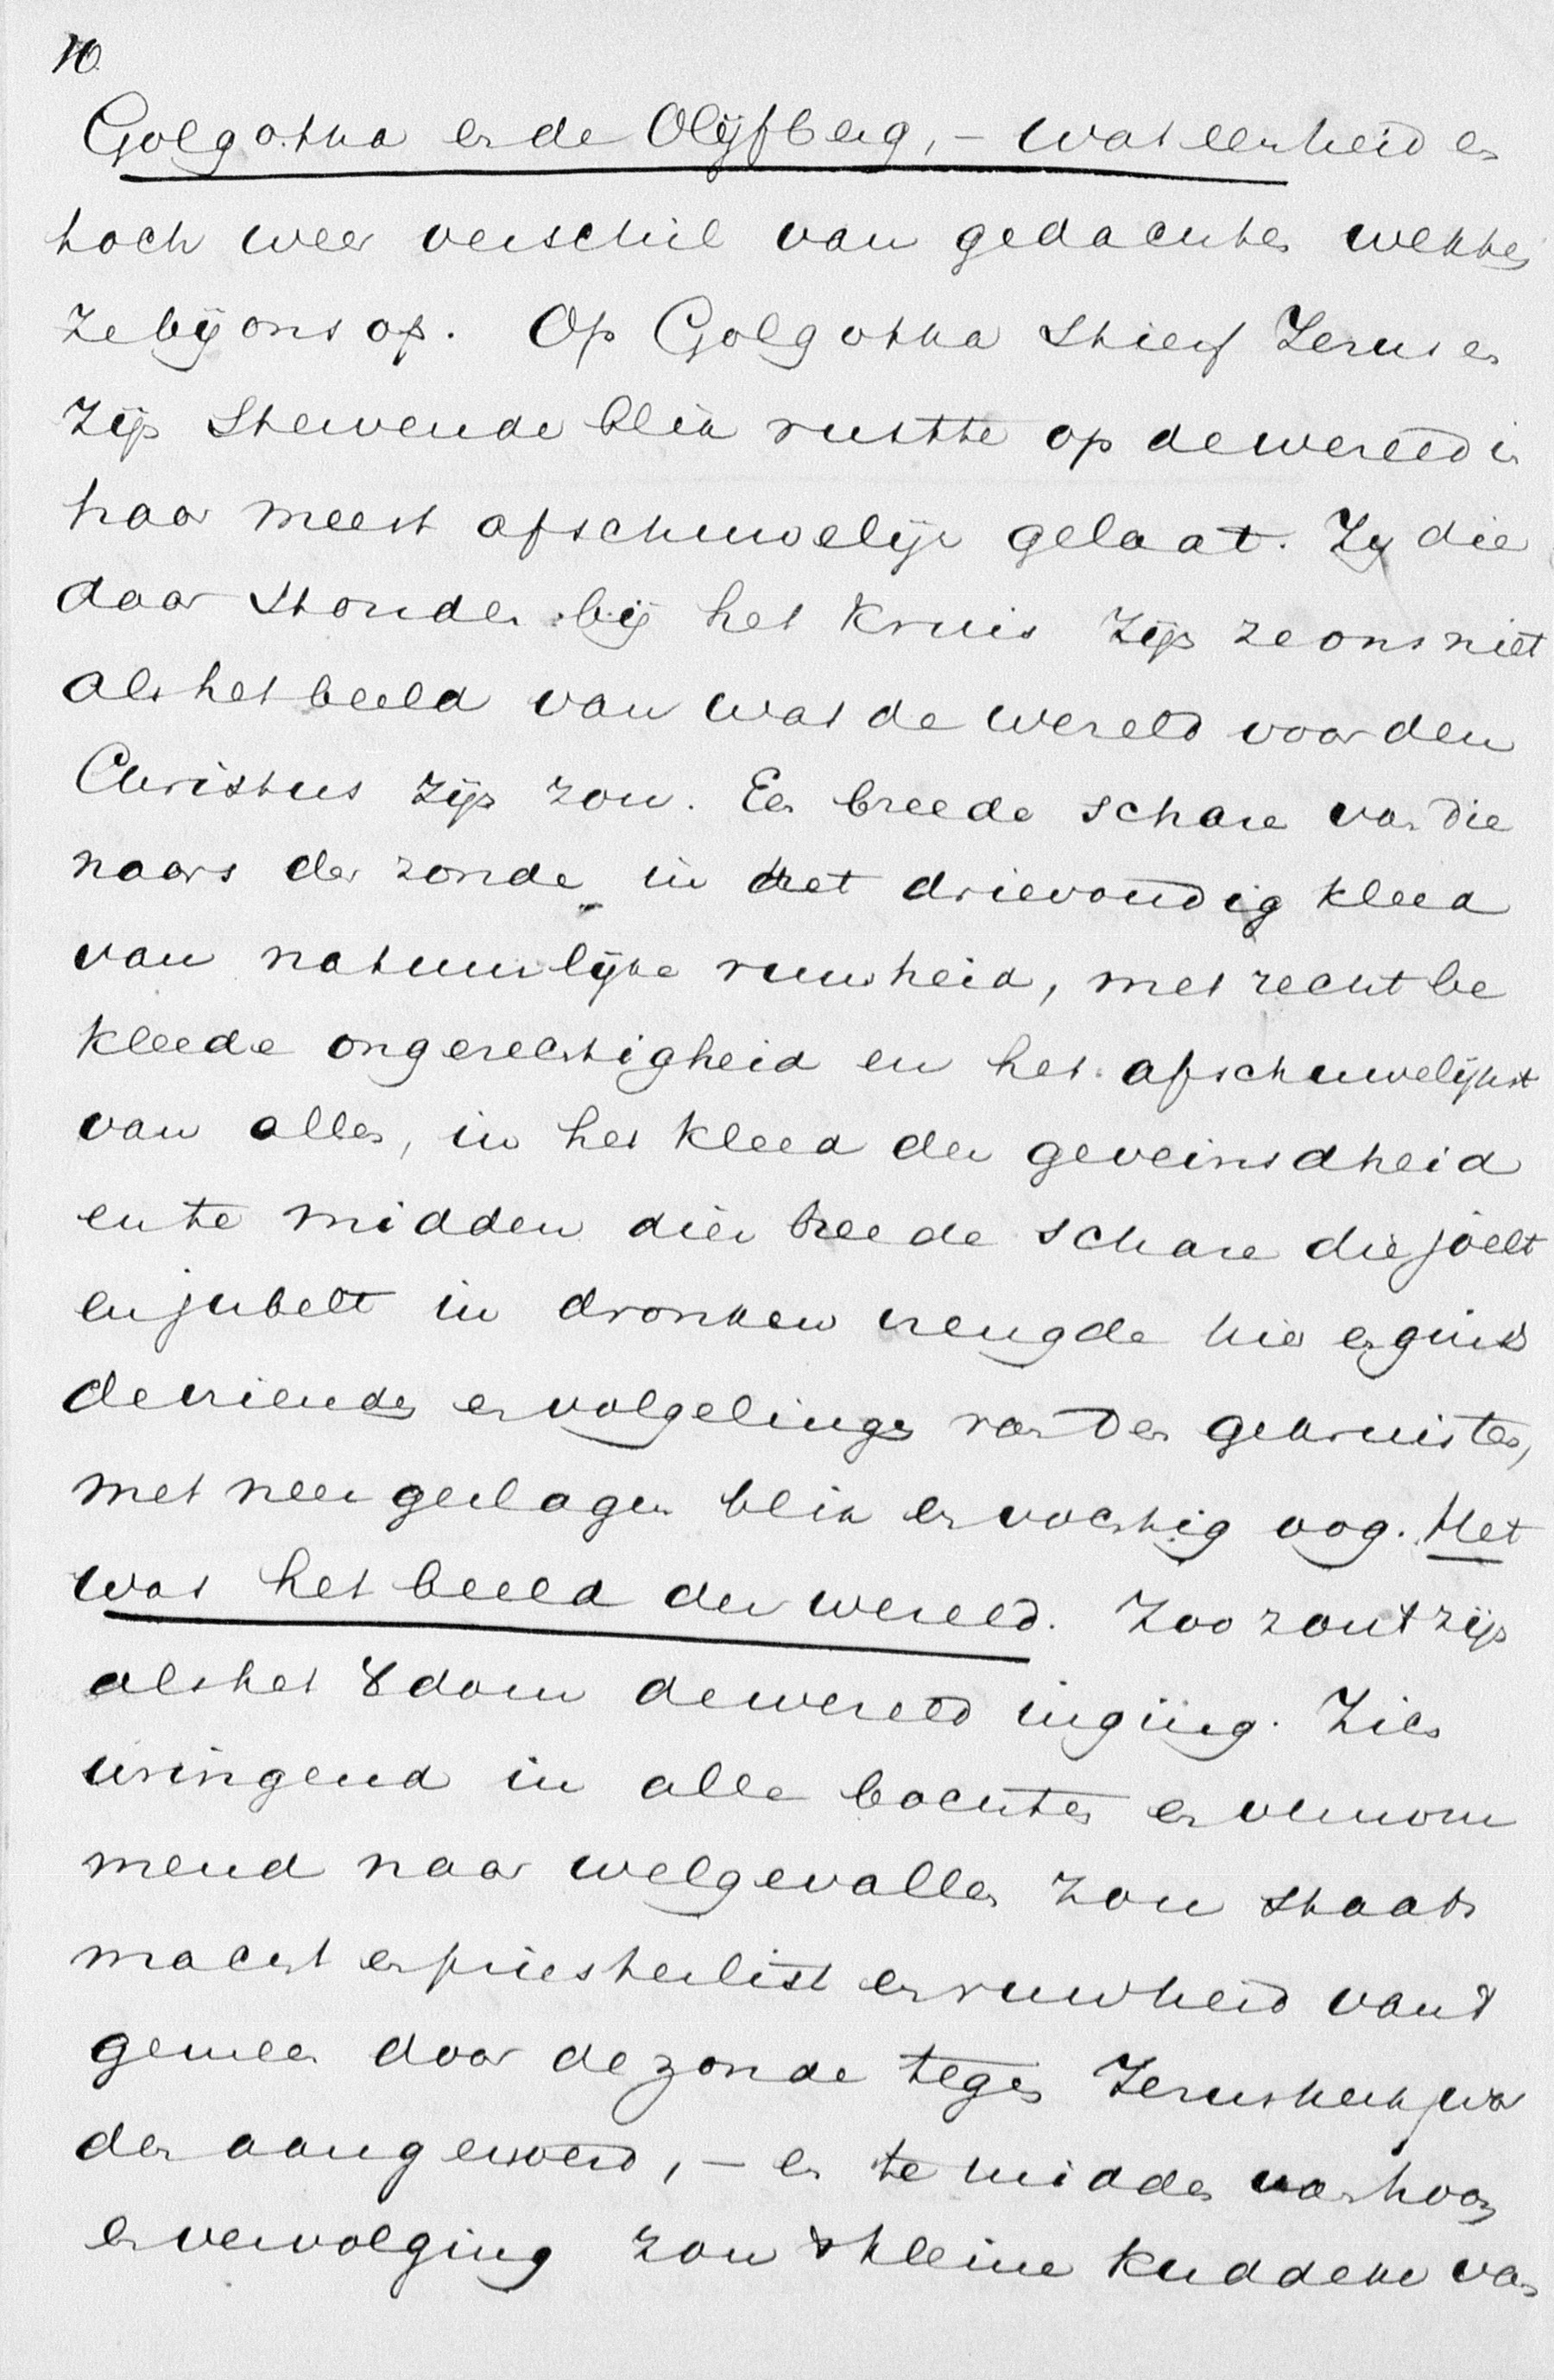 10.
Golgotha en de Olijfberg, – wat eenheid en
toch weer verschil van gedachten wekken
ze bij ons op. Op Golgotha stierf Jezus en
zijn stervende blik rustte op de wereld in
haar meest afschuwelijk gelaat. Zij die
daar stonden bij het kruis zijn ze ons niet
als het beeld van wat de wereld voor den
Christus zijn zou. Een breede schare van die
naars der zonde, in het drievoudig kleed
van natuurlijke ruwheid, met recht be
kleede ongerechtigheid en het afschuwelijkst
van alles, in het kleed der geveinsdheid
en te midden dier breede schare die joelt
en jubelt in dronken vreugde hier en ginds
de vrienden en volgelingen van den gekruisten,
met neergeslagen blik en vochtig oog. Het
was het beeld der wereld. Zoo zou 't zijn
als het Xdom de wereld inging. Zich
wringend in alle bochten en vermom
mend naar welgevallen zou staats
macht en priesterlist en ruwheid van 't
gemeen door de zonde tegen Jezus kerk wor
den aangewend, – en te midden van hoon
en vervolging zou 't kleine kuddeke van